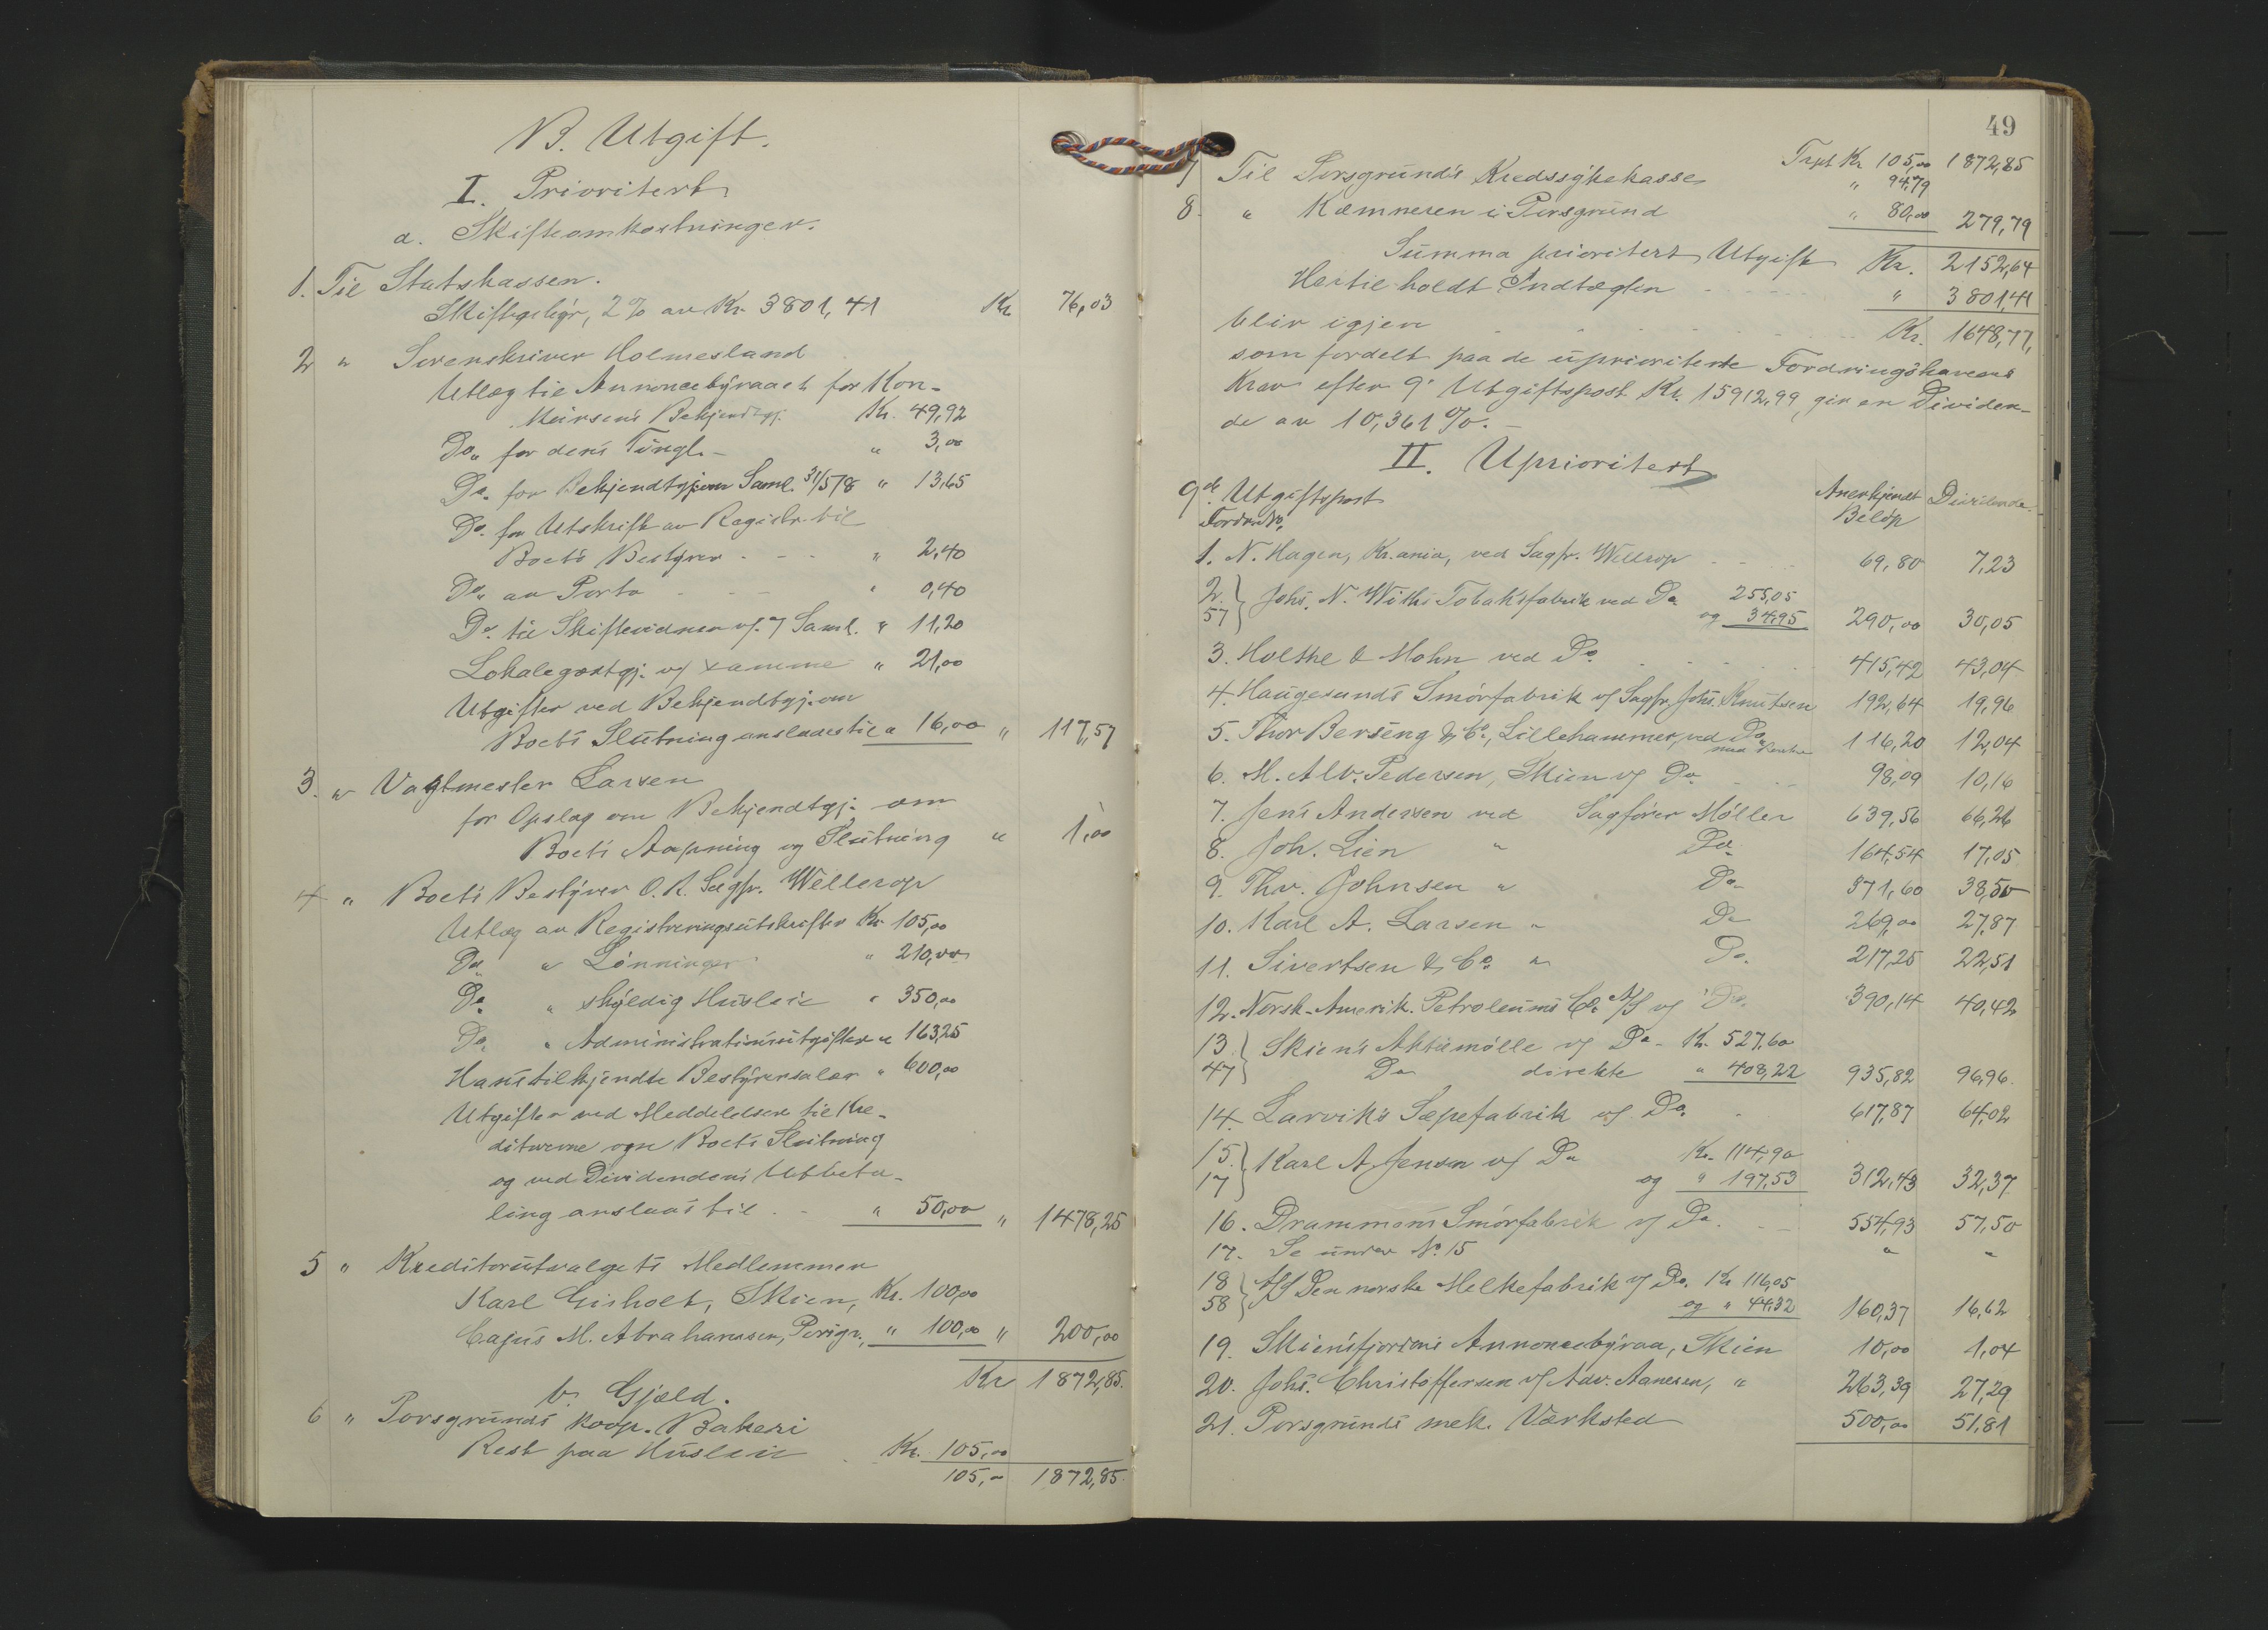 B. Utgift.
I. Prioritert
a. Skifteomkostninger.
1. Til Statskassen.
Skiftegebyr, 2 % av Kr. 3801,41 Kr. 76,03
2 " Sorenskriver Holmesland
Utlæg til Annoncebyraaet for Kon-
kursens Bekjendtgj. Kr. 49,92
Do. for dens Tingl. - " 3,00
Do. for Bekjendtgj. om Saml. 31/5 18 " 13,65
Do. for Utskrift av Registr. til
Boets Bestyrer - - - " 2,40
Do. av Porto - - - " 0,40
Do. til Skiftevidner v/ 7 Saml. " 11,20
Lokalegodtgj. v/ samme " 21,00
Utgifter ved Bekjendtgj. om
Boets Slutning anslaaes til " 16,00 " 117,57
3. " Vagtmester Larsen
for Opslag om Bekjendtgj. om
Boets Aapning og Slutning " 1,00
4 " Boets Bestyrer O.R. Sagfr. Wellerop
Utlæg av Registreringsutskrifter Kr. 105,00
Do. " Lønninger " 210,00
Do. " skyldig Husleie " 350,00
Do. " Administrationsutgifter " 163,25
Hans tilkjendte Bestyrersalær " 600,00
Utgifter ved Meddelelsen til Kre-
ditorerne om Boets Slutning
og ved Dividendens Utbeta-
ling anslaaes til - - " 50,00 " 1478,25
5 " Kreditorutvalgets Medlemmer
Karl Gisholt, Skien, Kr. 100,00
Cajus M. Abrahamsen, Porsgr., " 100,00 " 200,00
Kr 1872,85.
b. Gjæld.
6 " Porsgrunds Koop. Bakeri
Rest paa Husleie . Kr. 105,00
105,- 1872,85.
49
Trpt Kr 105,00 1872,85
7 Til Porsgrunds Kredssykekasse " 94,79
8. " Kæmneren i Porsgrund " 80,00 279,79
Summa prioritert Utgift Kr. 2152,64
Hertil holdt Indtægten - - - " 3801,41
blir igjen - - - Kr. 1648,77,
som fordelt paa de uprioriterte Fordringshaveres
Krav efter 9. Utgiftspost Kr. 15912,99, gir en Dividen-
de av 10,361 %. -
II. Uprioritert
9de Utgiftspost Anerkjendt Dividende.
Fordr. No. Beløp
1. N. Hagen, Kr.ania, ved Sagfr. Wellerop - - - 69,80 7,23
2 } Johs. N. Withs Tobaksfabrik ved Do. 255,05
57 } og 34,95 290,00 30,05
3. Holthe & Mohn ved Do. - - - 415,42 43,04
4. Haugesunds Smørfabrik v/ Sagfr. Johs. Knutsen 192,64 19,96
5. Thor Berseng & Co., Lillehammer, ved Do. 116,20 12,04
6. M. Alv. Pedersen, Skien v/ Do. - - - 98,09 10,16
7. Jens Andersen ved Sagfører Møller 639,56 66,26
8. Joh. Lien " Do. 164,54 17,05
9. Thv. Johnsen " Do. 371,60 38,50
10. Karl A. Larsen " Do 269,00 27,87
11. Sivertsen & Co. " Do. 217,25 22,51
12. Norsk-Amerik. Petroleums Co. A/S v/ Do. 390,14 40,42
13 } Skiens Aktiemølle v/ Do - Kr. 527,60
47 } Do direkte " 408,22 935,82 96,96.
14. Larviks Sæpefabrik v/ Do. - 617,87 64,02
15. } Karl A. Jensen v/ Do Kr. 114,90
17 } og " 197,53 312,43 32,37
16. Drammens Smørfabrik v/ Do. - - 554,93 57,50
17. Se under No. 15 " "
18 } A/S Den norske Melkefabrik v/ Do. Kr 116,05
58 } og " 44,32 160,37 16,62
19. Skiensfjordens Annoncebyraa, Skien 10,00 1,04
20. Johs. Christoffersen v/ Adv. Aanesen, " 263,39 27,29
21. Porsgrunds mek. Værksted 500,00 51,81